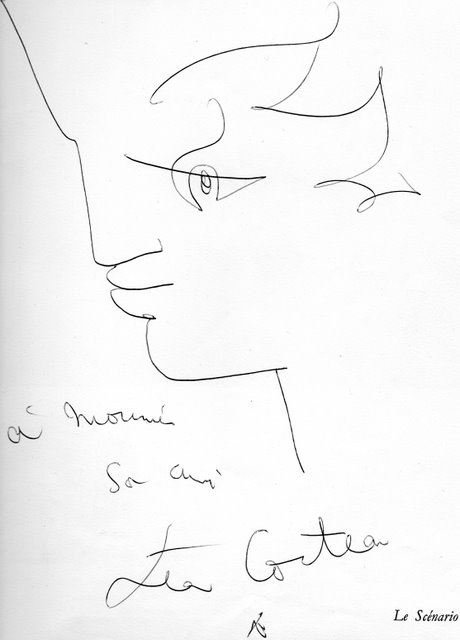 à Mounie
Son ami
Jean Cocteau
Le Scénario